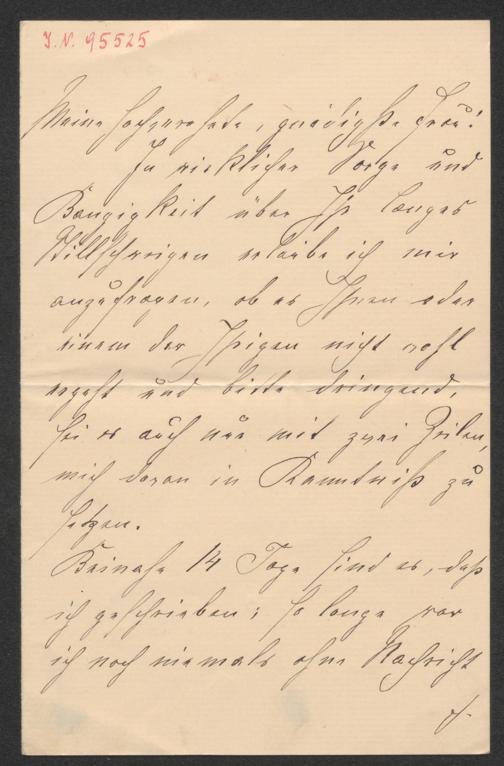 I.N. 95525
Meine hochverehrte, gnädigste Frau!
In wirklicher Sorge und
Bangigkeit über Ihr langes
Stillschweigen erlaube ich mir
anzufragen, ob es Ihnen oder
einem der Ihrigen nicht wohl
ergeht und bitte dringend,
sei es auch nur mit zwei Zeilen,
mich davon in Kenntniß zu
setzen.
Beinahe 14 Tage sind es, daß
ich geschrieben; so lange war
ich noch niemals ohne Nachricht